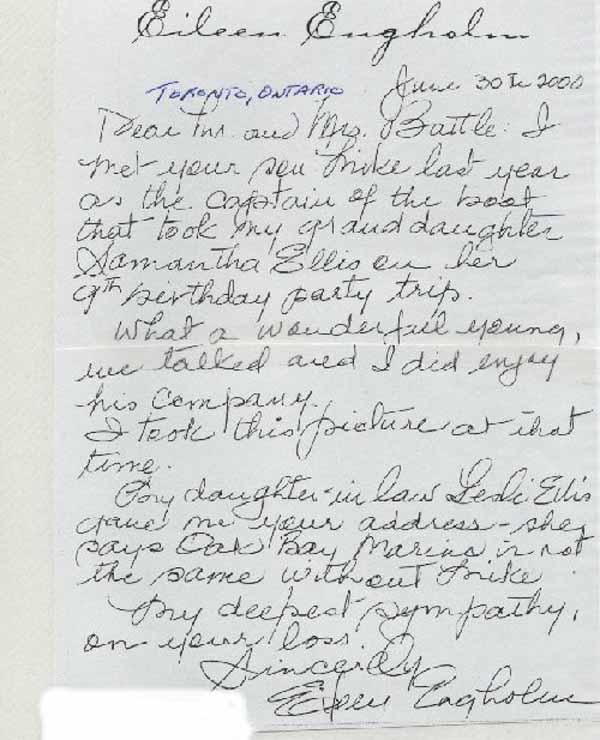 Eileen Engholm
TORONTO, ONTARIO June 30th 2000
Dear Mr. and Mrs. Battle: I
met your son Mike last year
as the Captain of the boat
that took my granddaughter
Samantha Ellis on her
9th birthday party trip.
What a wonderful young,
we talked and I did enjoy
his company.
I took this picture at that
time.
My daughter-in law Leslie Ellis
gave me your address - she
says Oak Bay Marina is not
the same without Mike.
My deepest sympathy,
on your loss.
Sincerely
Eileen Engholm